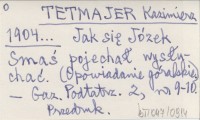 TETMAJER Kazimierz
1904... Jak się Józek
Smaś pojechał wysły-
chać. (Opowiadanie góralskie)
— Gaz. Podtatrz. 2) nr 9-10.
Przedruk.